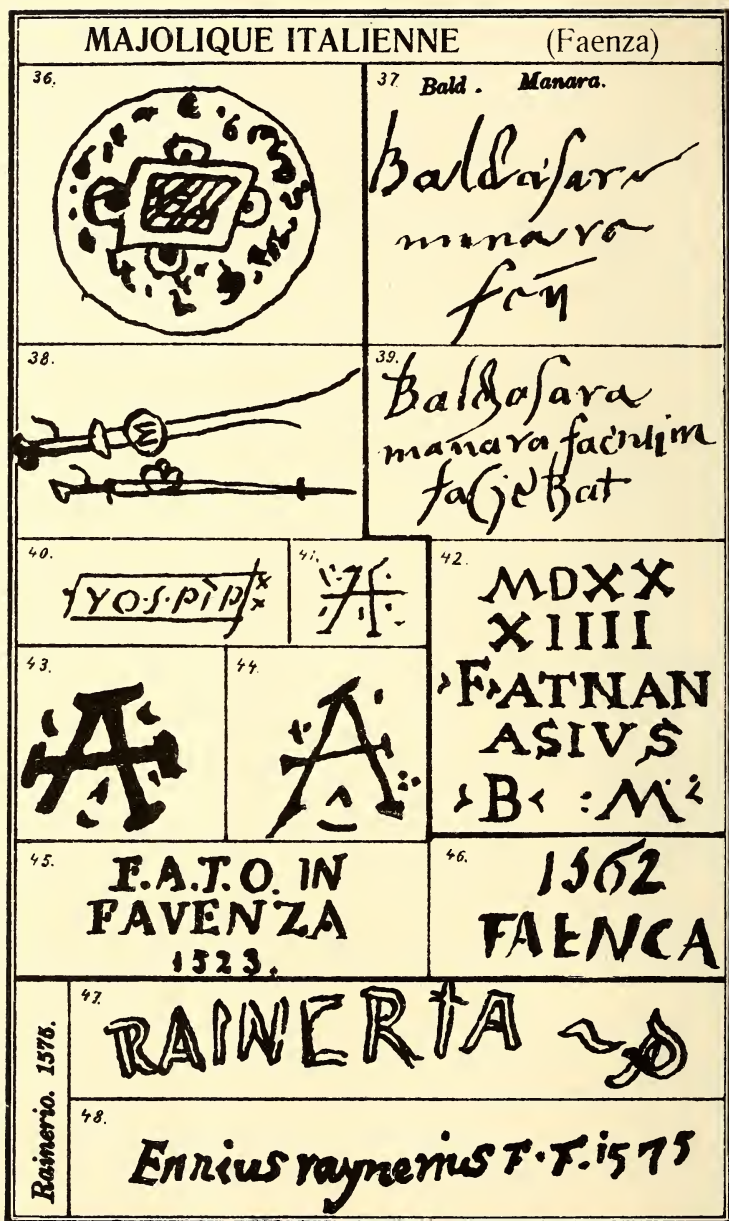 MAJOLIQUE ITALIENNE (Faenza)
36.
37. Bald. Manara.
Baldasare
minara
38.
39.
Baldasara
manara faentim
fasjebat
40.
41.
42.
A
MDXX
XIIII
F ATNAN
ASIVS
B : M
43.
44.
A
A
45.
F.A.T.O. IN
FAVENZA
1523.
46.
1562
FAENCA
Rainerio. 1575.
47.
RAINERIA
48.
Ennius raynerius F.F. 1575